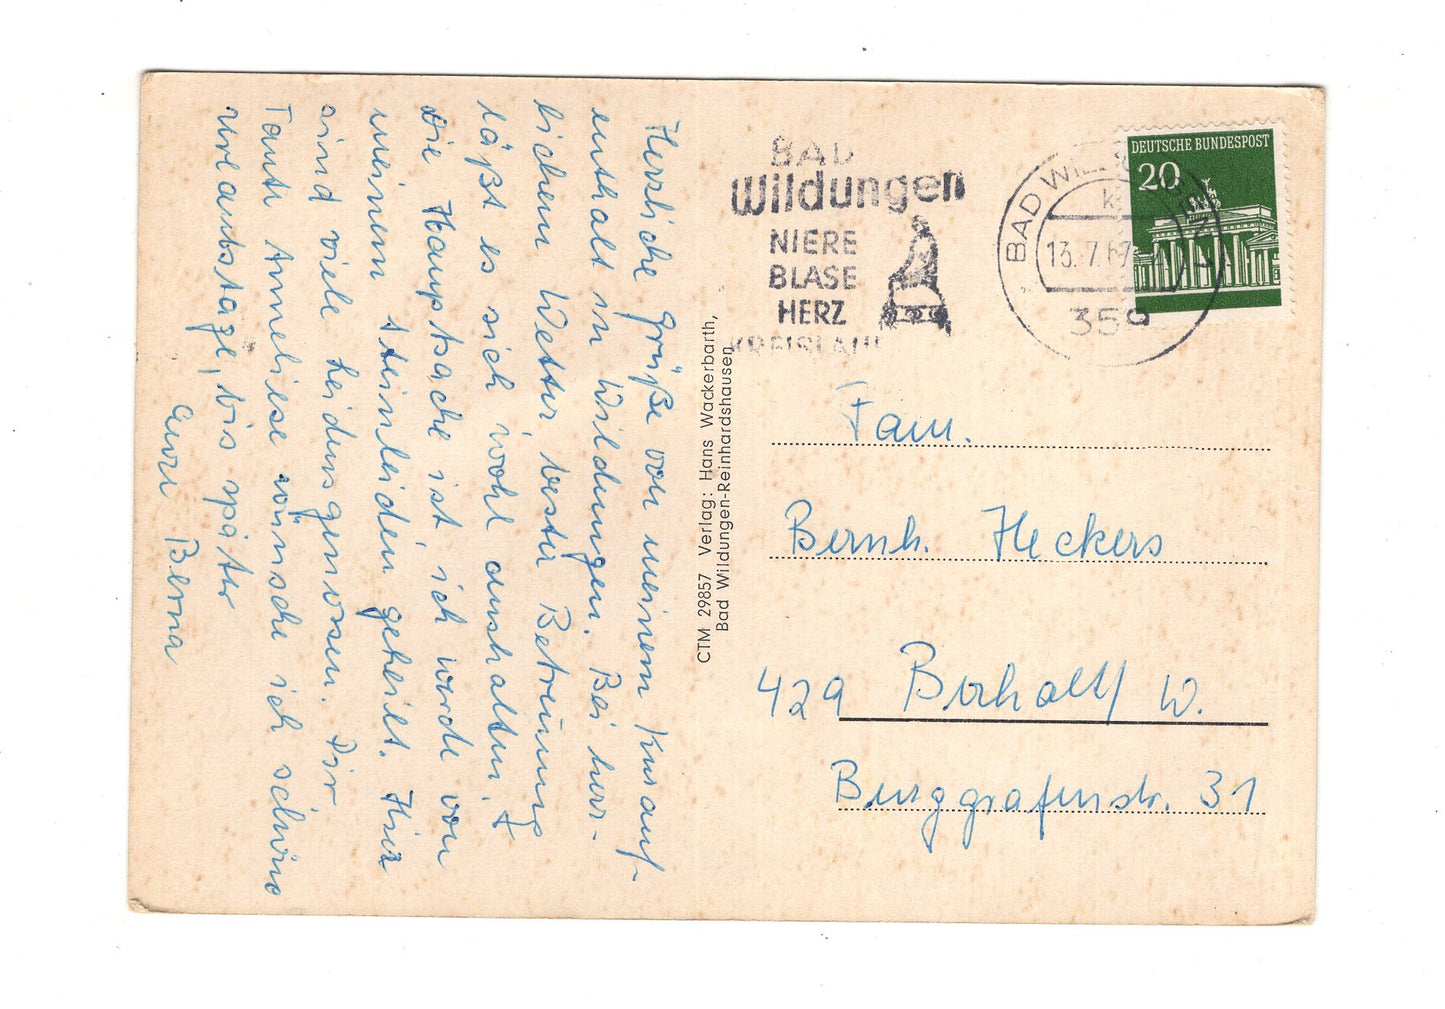 Herzliche Grüße von meinem Kurauf-
enthalt in Wildungen. Bei herr-
lichem Wetter, bester Betreuung
läßt es sich wohl aushalten.
Die Hauptsache ist, ich werde von
meinem Steinleiden geheilt. Hier
sind viele Leidensgenossen. Dir
Tante Anneliese wünsche ich schöne
Urlaubstage, bis später
Eure Berna
CTM 29857 Verlag: Hans Wackerbarth,
Bad Wildungen-Reinhardshausen
BAD
Wildungen
NIERE
BLASE
HERZ
KREISLAUF
BAD WIL
13.-7.67
359
DEUTSCHE BUNDESPOST
20
Fam.
Bernh. Heckers
429 Bocholt/ W.
Burggrafenstr. 31